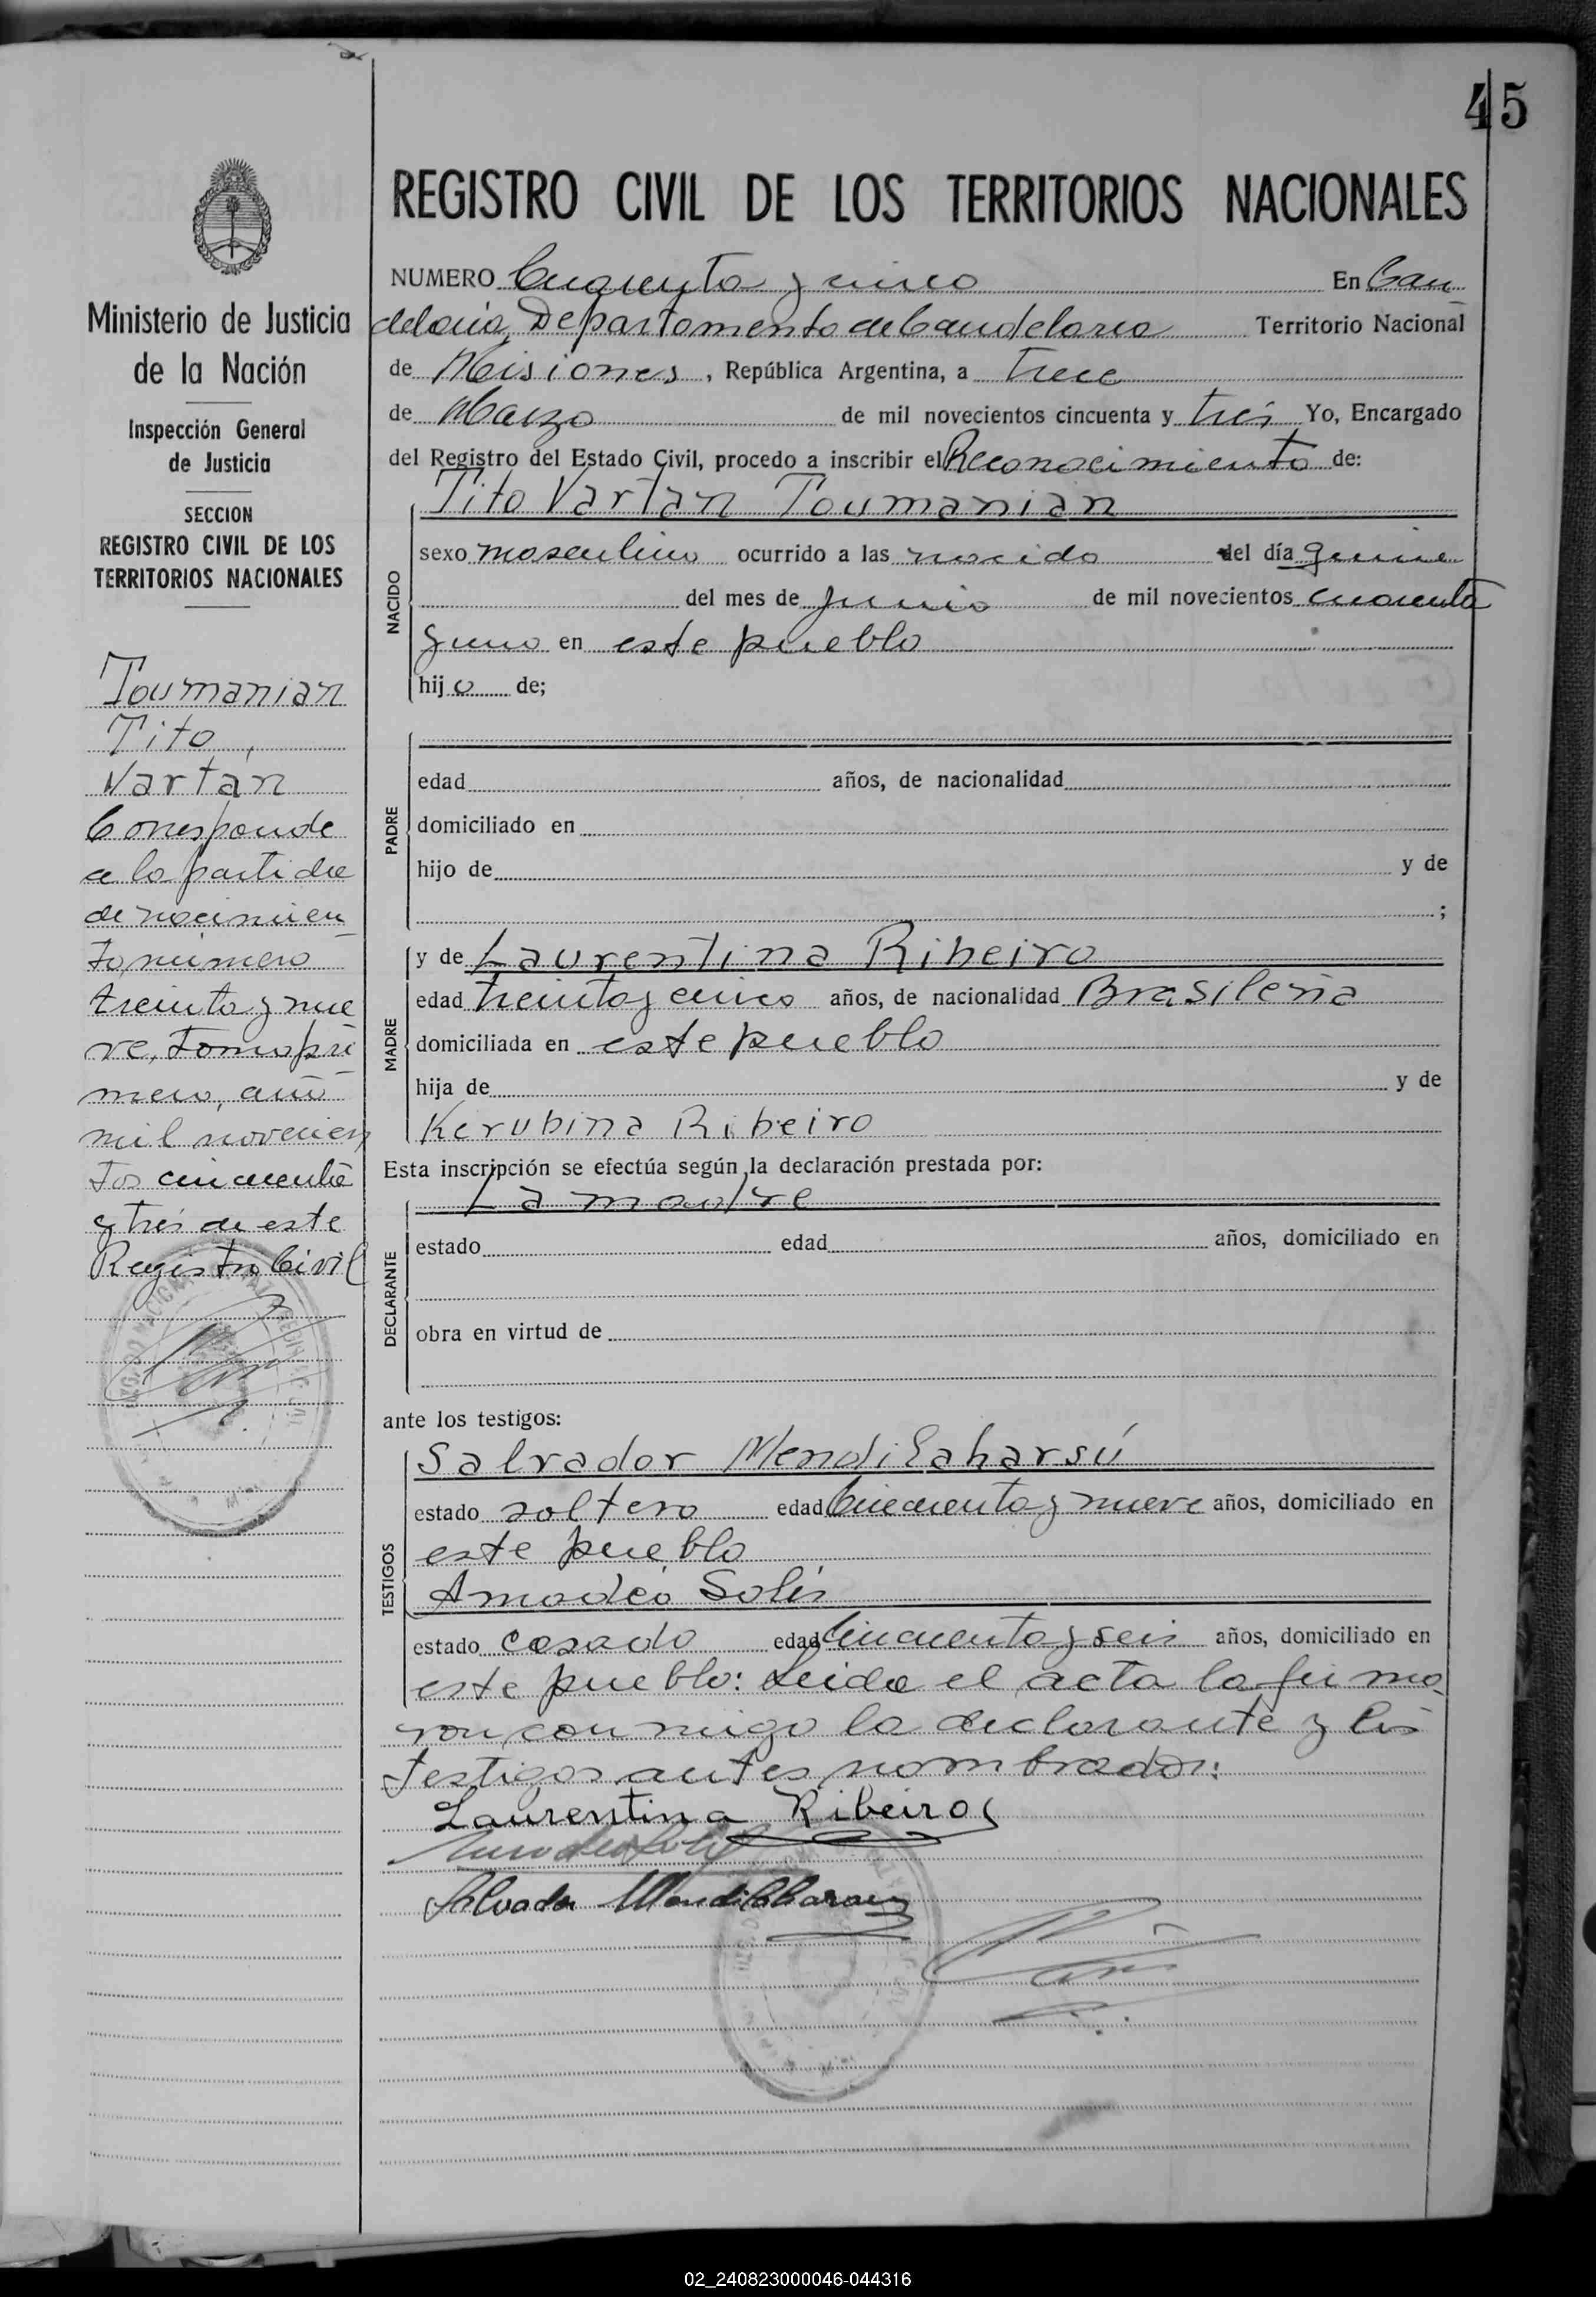 45
REGISTRO CIVIL DE LOS TERRITORIOS NACIONALES
Ministerio de Justicia
de la Nación
Inspección General
de Justicia
SECCION
REGISTRO CIVIL DE LOS
TERRITORIOS NACIONALES
Toumanian
Tito,
Vartan
Corresponde
a la partida
de nacimien
to número
treinta y nue
ve, tomo pri
mero, año
mil novecien
tos cincuenta
y tres de este
Registro Civil
NUMERO y cinco En Can
delaria, Departamento de Candelaria Territorio Nacional
de Misiones, República Argentina, a trece
de Marzo de mil novecientos cincuenta y tres Yo, Encargado
del Registro del Estado Civil, procedo a inscribir el Reconocimiento de:
Tito Vartan Toumanian
NACIDO
sexo masculino ocurrido a las nacido del día quince
del mes de junio de mil novecientos cuarenta
y uno en este pueblo
hijo de;
PADRE
edad años, de nacionalidad
domiciliado en
hijo de y de
;
MADRE
y de Laurentina Ribeiro
edad treinta y cinco años, de nacionalidad Brasileña
domiciliada en este pueblo
hija de y de
Kerubina Ribeiro
Esta inscripción se efectúa según la declaración prestada por:
La madre
DECLARANTE
estado edad años, domiciliado en
obra en virtud de
ante los testigos:
TESTIGOS
Salvador Mendilaharsú
estado soltero edad Cincuenta y nueve años, domiciliado en
este pueblo
Amadeo Solis
estado casado edad Cincuenta y seis años, domiciliado en
este pueblo: Leida el acta la firma
ron conmigo la declarante y los
testigos antes nombrados:
Laurentina Ribeiro
Salvador
02_240823000046-044316